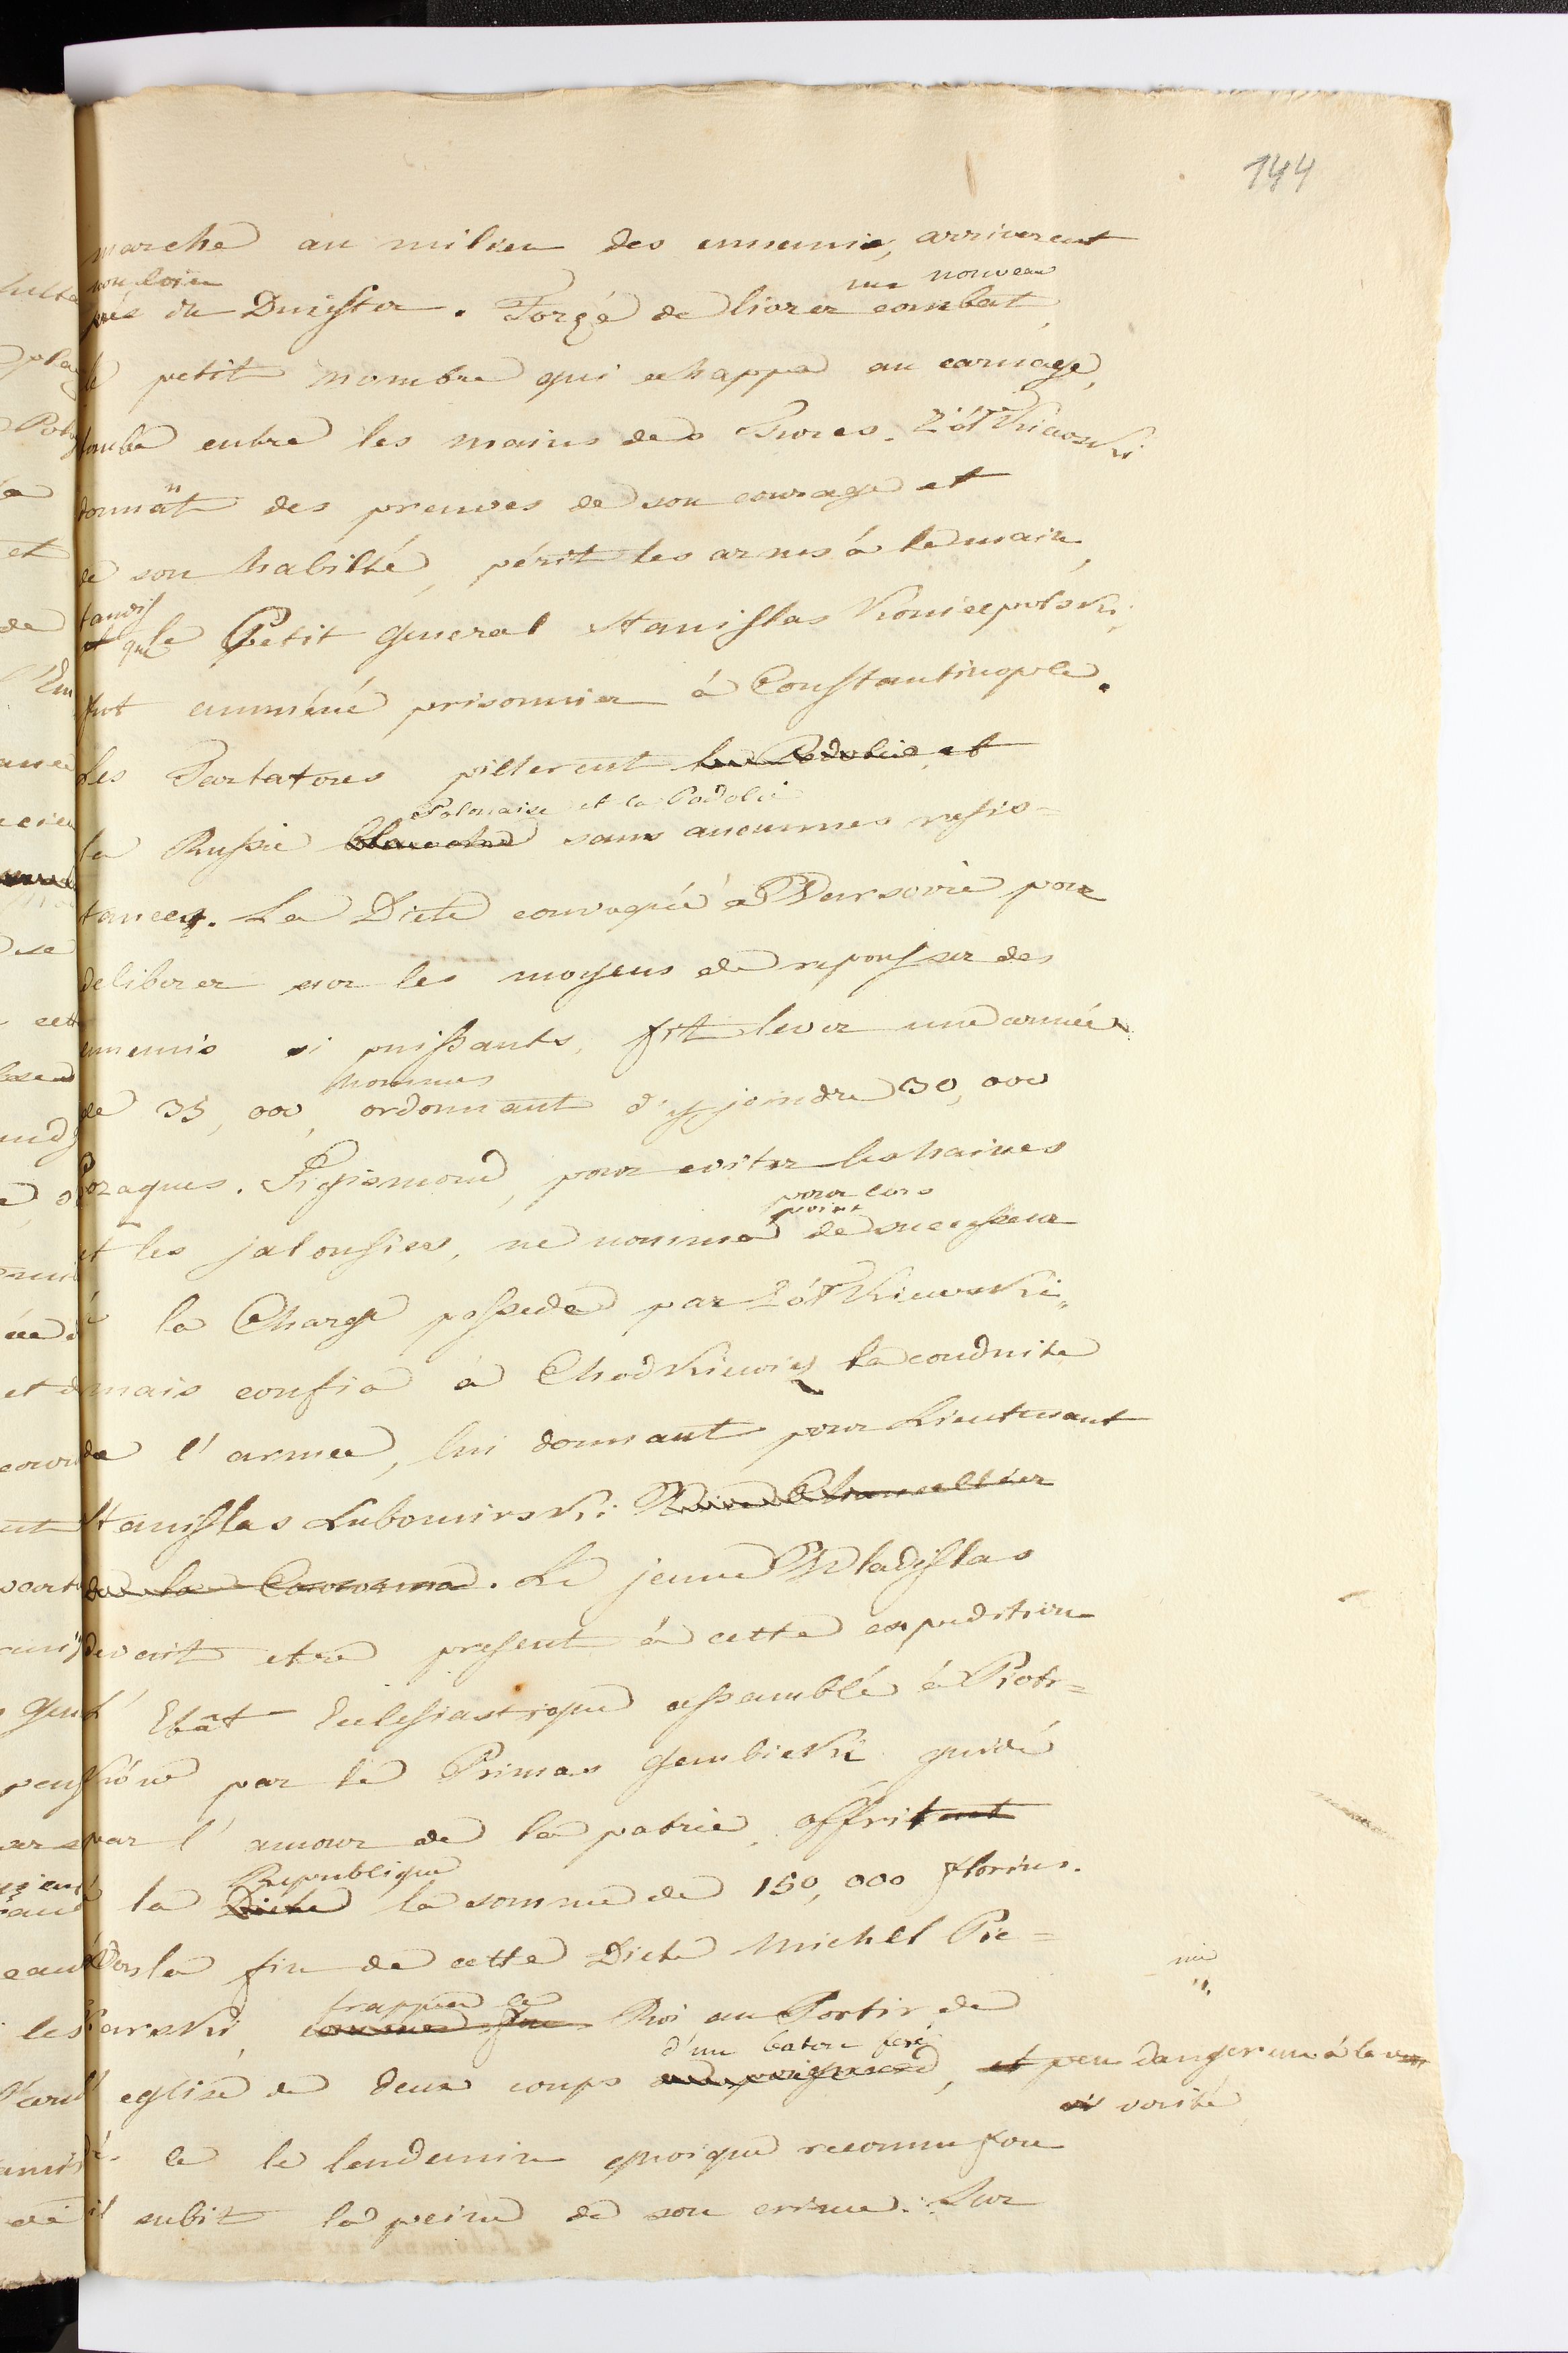 144
marche au milieu des ennemis, arriverent
non loin
près du Dniester. Forçé de livrer un nouveau combat,
le petit nombre qui echappa au carnage,
tomba entre les mains des Turcs. Żółkiewski
donnânt des preuves de son courage et
de son habilté, périt les armes à la main,
tandis
et que le Petit General Stanislas Koniecpolski,
fut amméné prisonnier à Constantinople.
Les Tartatores pillerent la Podolie et
Polonaise et la Podolie
la Russie blanche sans aucunnes resis=
tances. La Diete convoquée à Warsovie pour
deliberer sur les moyens de repousser des
ennemis si puissants, fit lever une armée
hommes
de 35,000, ordonnant d'y joindre 30,000
Cozaques. Sigismond, pour eviter les haines
pour lors
point
et les jalousies, ne nomma de successeur
à la Charge possedé par Żółkiewski,
mais confia à Chodkiewicz la conduite
de l'armée, lui donnant pour Lieutenant
Stanislas Lubomirski Vice Chancellier
de la Couronne. Le jeune Wladislas
devait etre present à cette expedition
L'Etât Eclesiastique assamblé à Piotr=
kióne par le Primas Gembicki guidé
par l'amour de la patrie, offritent
Republique
à la Diete la somme de 150,000 florins.
Vers la fin de cette Diete Michel Pie=
karski, frappa le Roi au Sortir de
d'un baton feré
l'eglise de deux coups de poignard, et peu dangereux à la
verité
le le lendemin quoique reconnu fou
il subit la peine de son crime. Sur